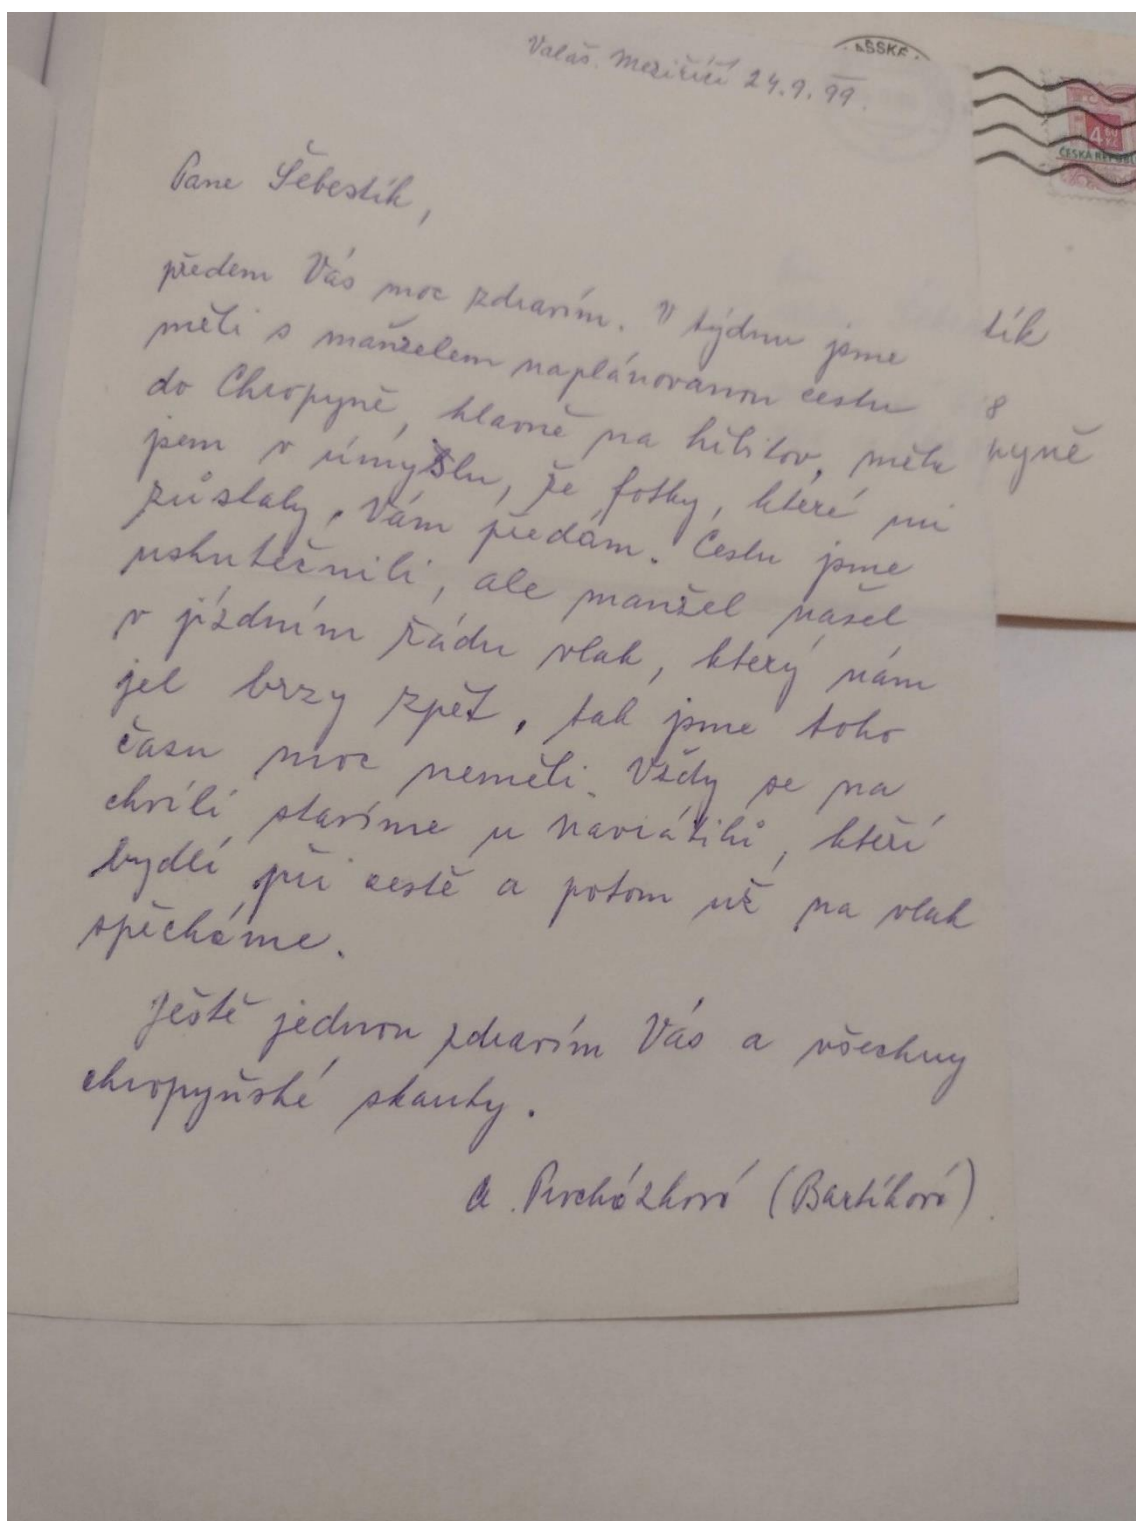 Valaš. Meziříčí 24.9.99.
AŠSKÉ
4 60 Kč
ČESKÁ REPUBL
Pane Šebestík,
předem Vás moc zdravím. V týdnu jsme
měli s manželem naplánovanou cestu
do Chropyně, hlavně na hřbitov, měla
jsem v úmyslu, že fotky, které mi
zůstaly, Vám předám. Cestu jsme
uskutečnili, ale manžel našel
v jízdním řádu vlak, který nám
jel brzy zpět, tak jsme toho
času moc neměli. Vždy se na
chvíli stavíme u Navrátilů, kteří
bydlí při cestě a potom už na vlak
spěcháme.
Ještě jednou zdravím Vás a všechny
chropyňské skauty.
A. Procházková (Bartíková)
tík
8
pyně